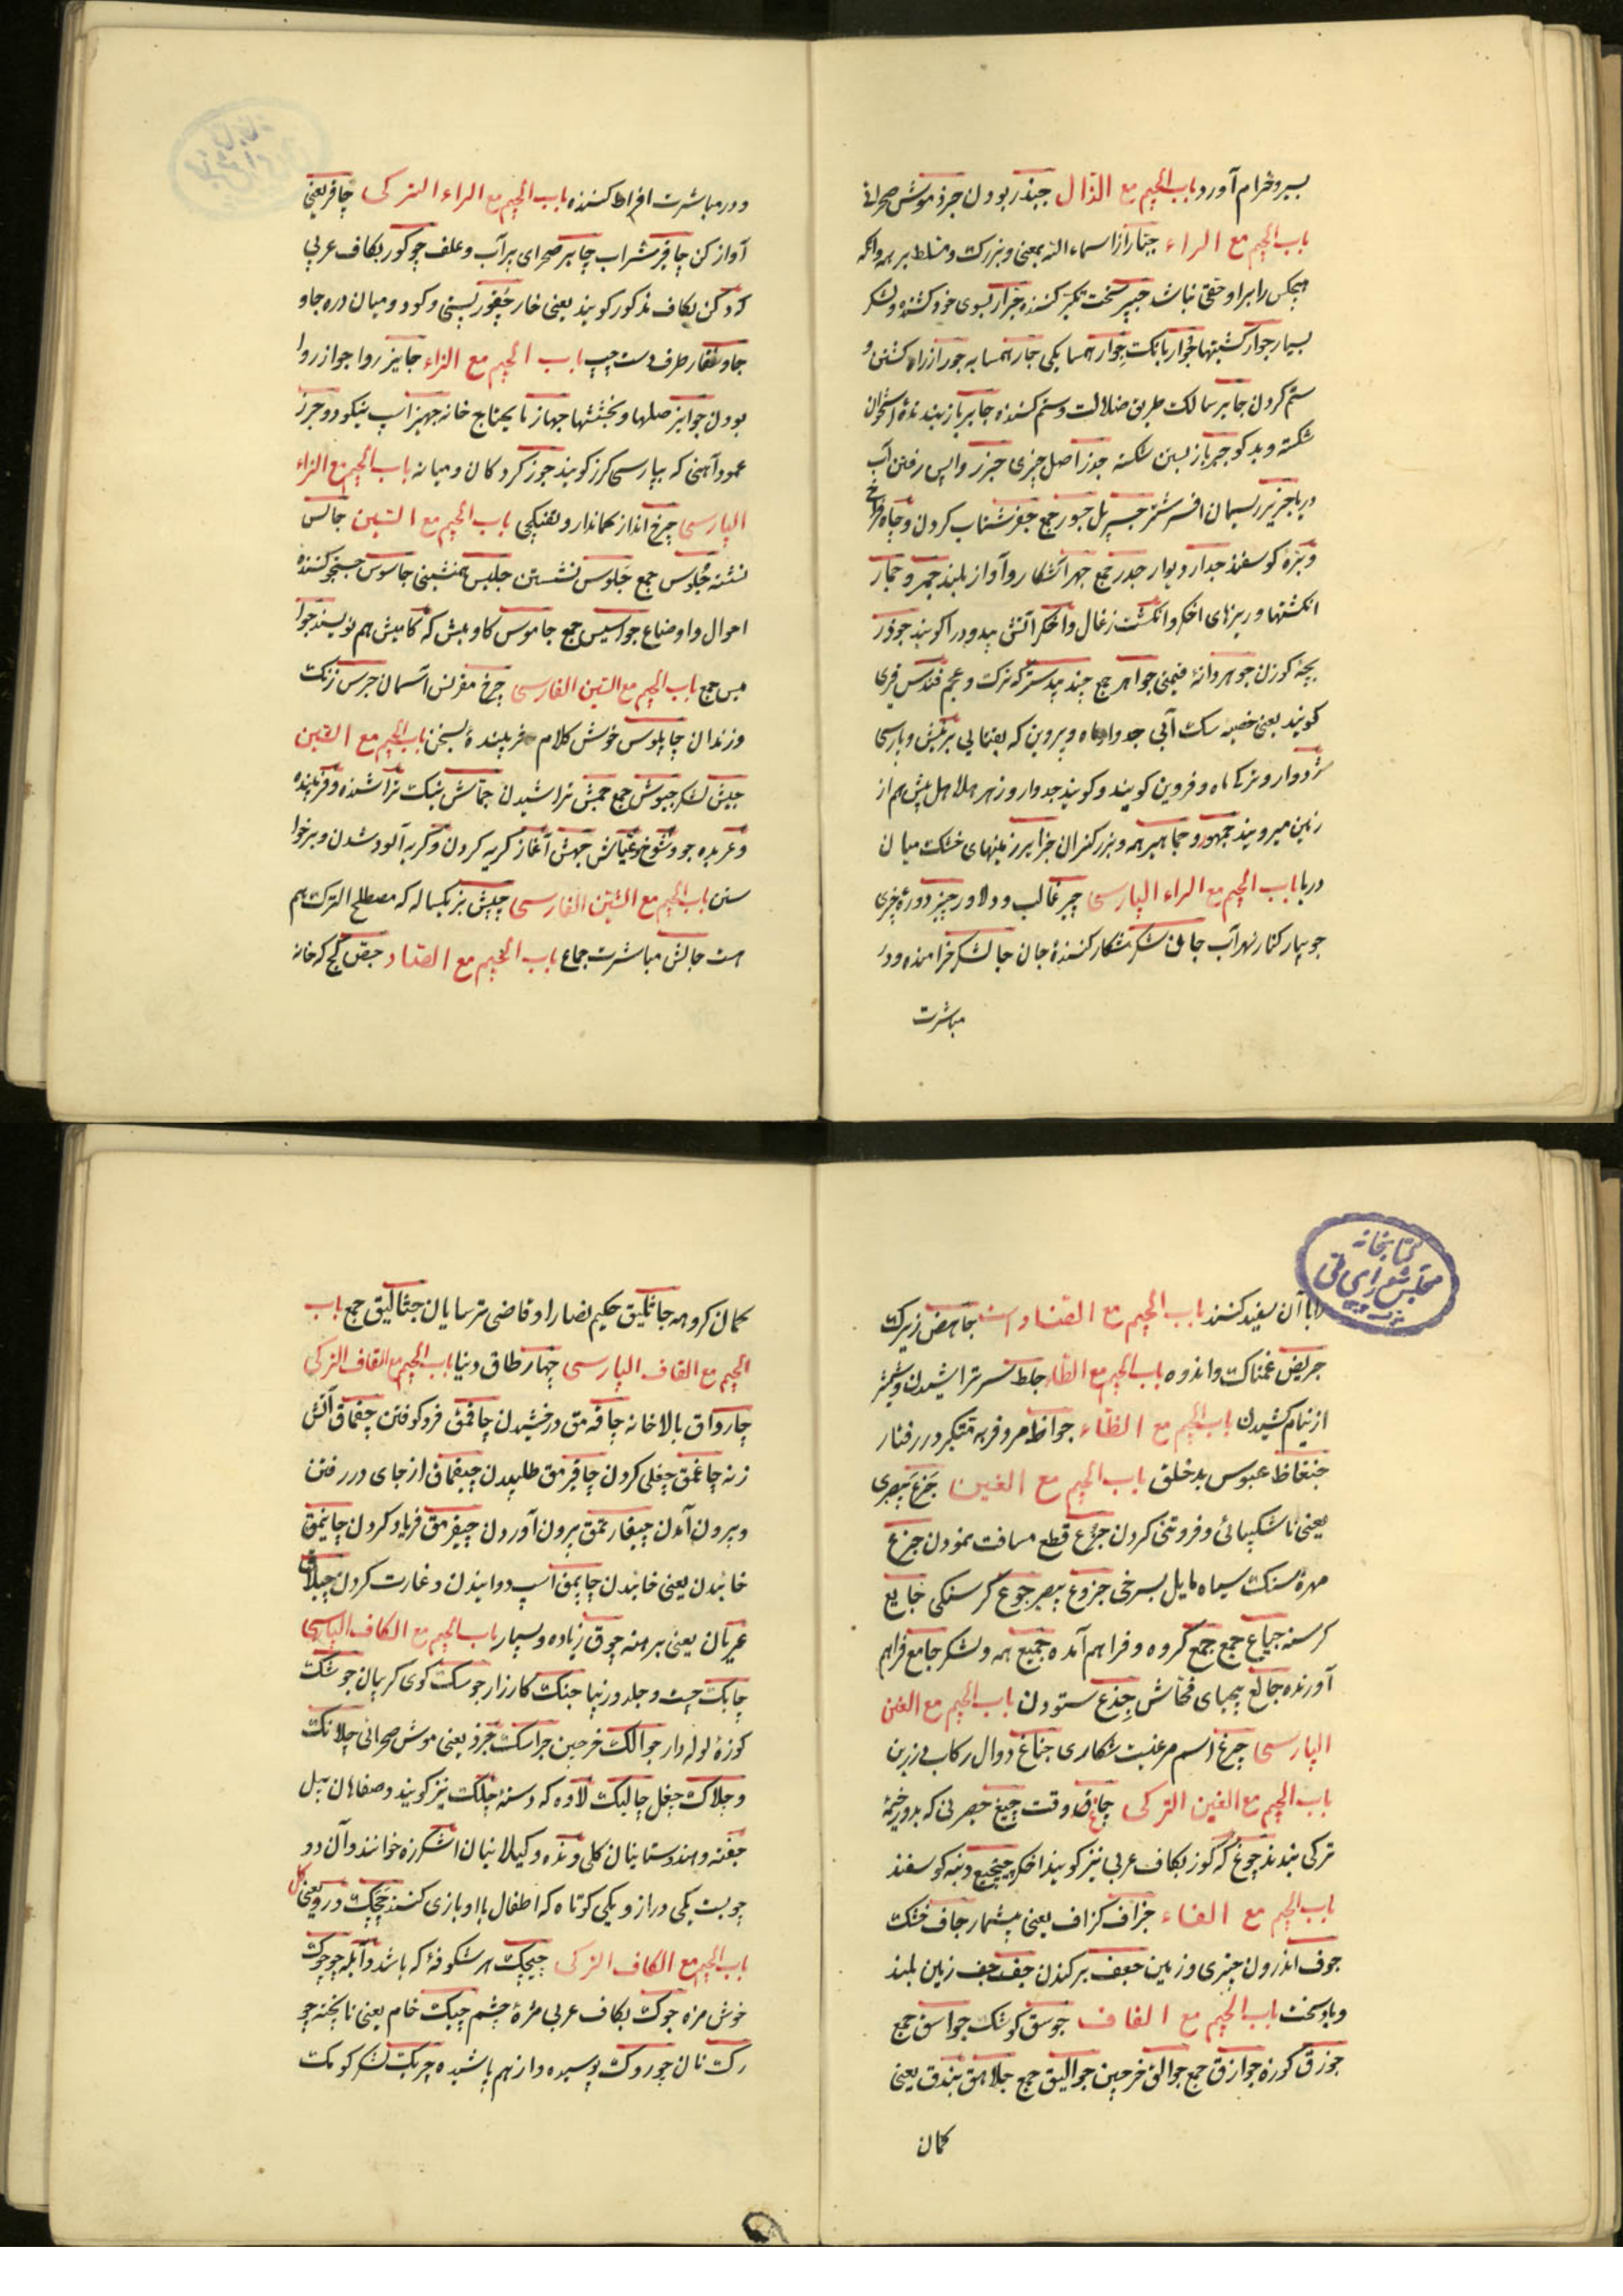 بسیر و خرام آورد باب الجیم مع الذال جبذ ربودن جرذ موش صحرائی
باب الجیم مع الراء جبّار از اسماء الله بمعنی و بزرک و مسلط بر همه وانکه
هیچکس را بر او حقی نباشد جبیر سخت تکبر کننده جرار بسوی خود کشنده و لشکر
بسیار جوار کشتیها خوار بانک جوار همسایکی جار همسایه جور از راه کشتن و
ستم کردن جابر سالک طریق ضلالت و ستم کننده جابر باز بندنده استخوان
شکسته و بدکو جبر باز بستن شکسته جذر اصل چیزی جزر واپس رفتن آب
دریا جریر ریسمان افسر شتر جسر پل جسور جمع جفر شتاب کردن و چاه فراخ
و بزه کوسفند جدار دیوار جدر جمع جهر آشکار و آواز بلند جمر و جمار
انکشتها و ریزهای اخکر و انکشت زغال و اخکر آتش بیدود را کویند جوذر
بچه کوزن جوهر دانه قیمتی جواهر جمع جند بیدستر که ترک و عجم قندس قری
کویند یعنی خصیه سک آبی جدوار ماه و پروین که یفتایی بر تبش و پارسی
ژدوار و ترک ماه و فروین کویند و کویند جدوار و زهر هلاهل پیش هم از
زمین میرویند جمهور و جماهیر همه و بزرکتران جزایر زمینهای خشک میان
دریا باب الجیم مع الراء الپارسی چیر غالب و دلاور چنبر دوره چیزی
جویبار کنار نهر آب جافی شکر شکار کننده جان جالشکر خرامنده و در
مباشرت
و در مباشرت افراط کننده باب الجیم مع الراء الترکی چاقر یعنی
آواز کن چاقر شراب چایر صحرای پر آب و علف چوکور بکاف عربی
که دکن بکاف مذکور کویند یعنی خار چقور پستی و کود و میان دره جاو
جاوشقار طرف دست چپ باب الجیم مع الزاء جایز روا جواز روا
بودن جوایز صلها و بخششها جهاز ما یحتاج خانه جهیز اسپ نیکو دو جرز
عمود آهنی که بپارسی کرز کویند جوز کردکان و میانه باب الجیم مع الزاء
الپارسی چرخ انداز کماندار و تفنکچی باب الجیم مع السین جالس
نشسته جلوس جمع جلوس نشستن جلیس همنشینی جاسوس جستجو کننده
احوال و اوضاع جواسیس جمع جاموس کاومیش که کامیش هم نویسند جوا
میس جمع باب الجیم مع السین الفارسی چرخ مقرنس آسمان جرس زنک
و زندان چاپلوس خوش کلام فریبنده بسخن باب الجیم مع الشین
جیش لشکر جیوش جمع جمش تراشیدن جمّاش نیک تراشنده و فریبنده
و عربده جو و شوخ و عیّاش جهش آغاز کریه کردن و کریه آلود شدن و برخوا
ستن باب الجیم مع الشین الفارسی چپش بز یکساله که مصطلح الترک هم
است جالش مباشرت جماع باب الجیم مع الصاد جص کچ که خانه
را با آن سفید کنند باب الجیم مع الضاد است جاهض زیرک
جریض غمناک و اندوه باب الجیم مع الطاء جلط سر تراشیدن و شمشیر
از نیام کشیدن باب الجیم مع الظاء جواظ مرد فربه متکبر در رفتار
جنعاظ عبوس بدخلق باب الجیم مع العین جزع بیصبری
یعنی ناشکیبائی و فروتنی کردن جزع قطع مسافت نمودن جزع
مهره سنک سیاه مایل بسرخی جزوع بیصبر جوع کرسنکی جایع
کرسنه جیاع جمع جمع کروه و فراهم آمده جمیع همه و لشکر جامع فراهم
آورنده جالع بیحیای فحّاش جذع ستودن باب الجیم مع الغین
الپارسی چرغ اسم مرغیست شکاری جناغ دوال رکاب زرین
باب الجیم مع الغین الترکی چاغ وقت چیغ حصرنی که بدور خیمه
ترکی بندند چوغ که کوز بکاف عربی نیز کویند اخکر چیچیغ دنبه کوسفند
باب الجیم مع الفاء جزاف کزاف یعنی بیشمار جاف خشک
جوف اندرون چیزی و زمین جعف برکندن جفجف زمین بلند
و باد سخت باب الجیم مع القاف جوسق کوشک جواسق جمع
جوزق کوزه جوازق جمع جوالق خرجین جوالیق جمع جلاهق بندق یعنی
کمان
کمان کروهه جاثلیق حکیم نصارا و قاضی ترسایان جثالیق جمع باب
الجیم مع القاف الپارسی چهار طاق دنیا باب الجیم مع القاف الترکی
چارواق بالاخانه چاقمق درخشیدن چاقمق فرو کوفتن چقماق آتش
زنه چاغمق چغلی کردن چاقرمق طلبیدن چیقماق از جای در رفتن
و بیرون آمدن چیقارتمق بیرون آوردن چیقرمق فریاد کردن چاینمق
خائیدن یعنی خائیدن چاپمق اسپ دوانیدن و غارت کردن چپلاق
عریان یعنی برهنه چوق زیاده و بسیار باب الجیم مع الکاف الپارسی
چابک چست و جلد و زیبا جنک کارزار جوسک کوی کریبان جوشک
کوزه لوله دار جوالک خرجین جراسک جرذ یعنی موش صحرائی جلانک
و جلاک جعل چالیک لاوه که دسته چلک نیز کویند و صفاهان پل
چفته و هندوستانیان کلی و نده و کیلانیان اشکرزه خوانند و آن دو
چوبست یکی دراز و یکی کوتاه که اطفال با او بازی کنند چچک در رو یعنی کل
باب الجیم مع الکاف الترکی چیچک هر شکوفه که باشد و آبله چوچوک
خوش مزه جوک بکاف عربی مژه چشم چیک خام یعنی ناپخته چو
رک نان چوروک پوسیده و از هم پاشیده چریک لشکر کومک
کتابخانه
مجلس شورای ملی